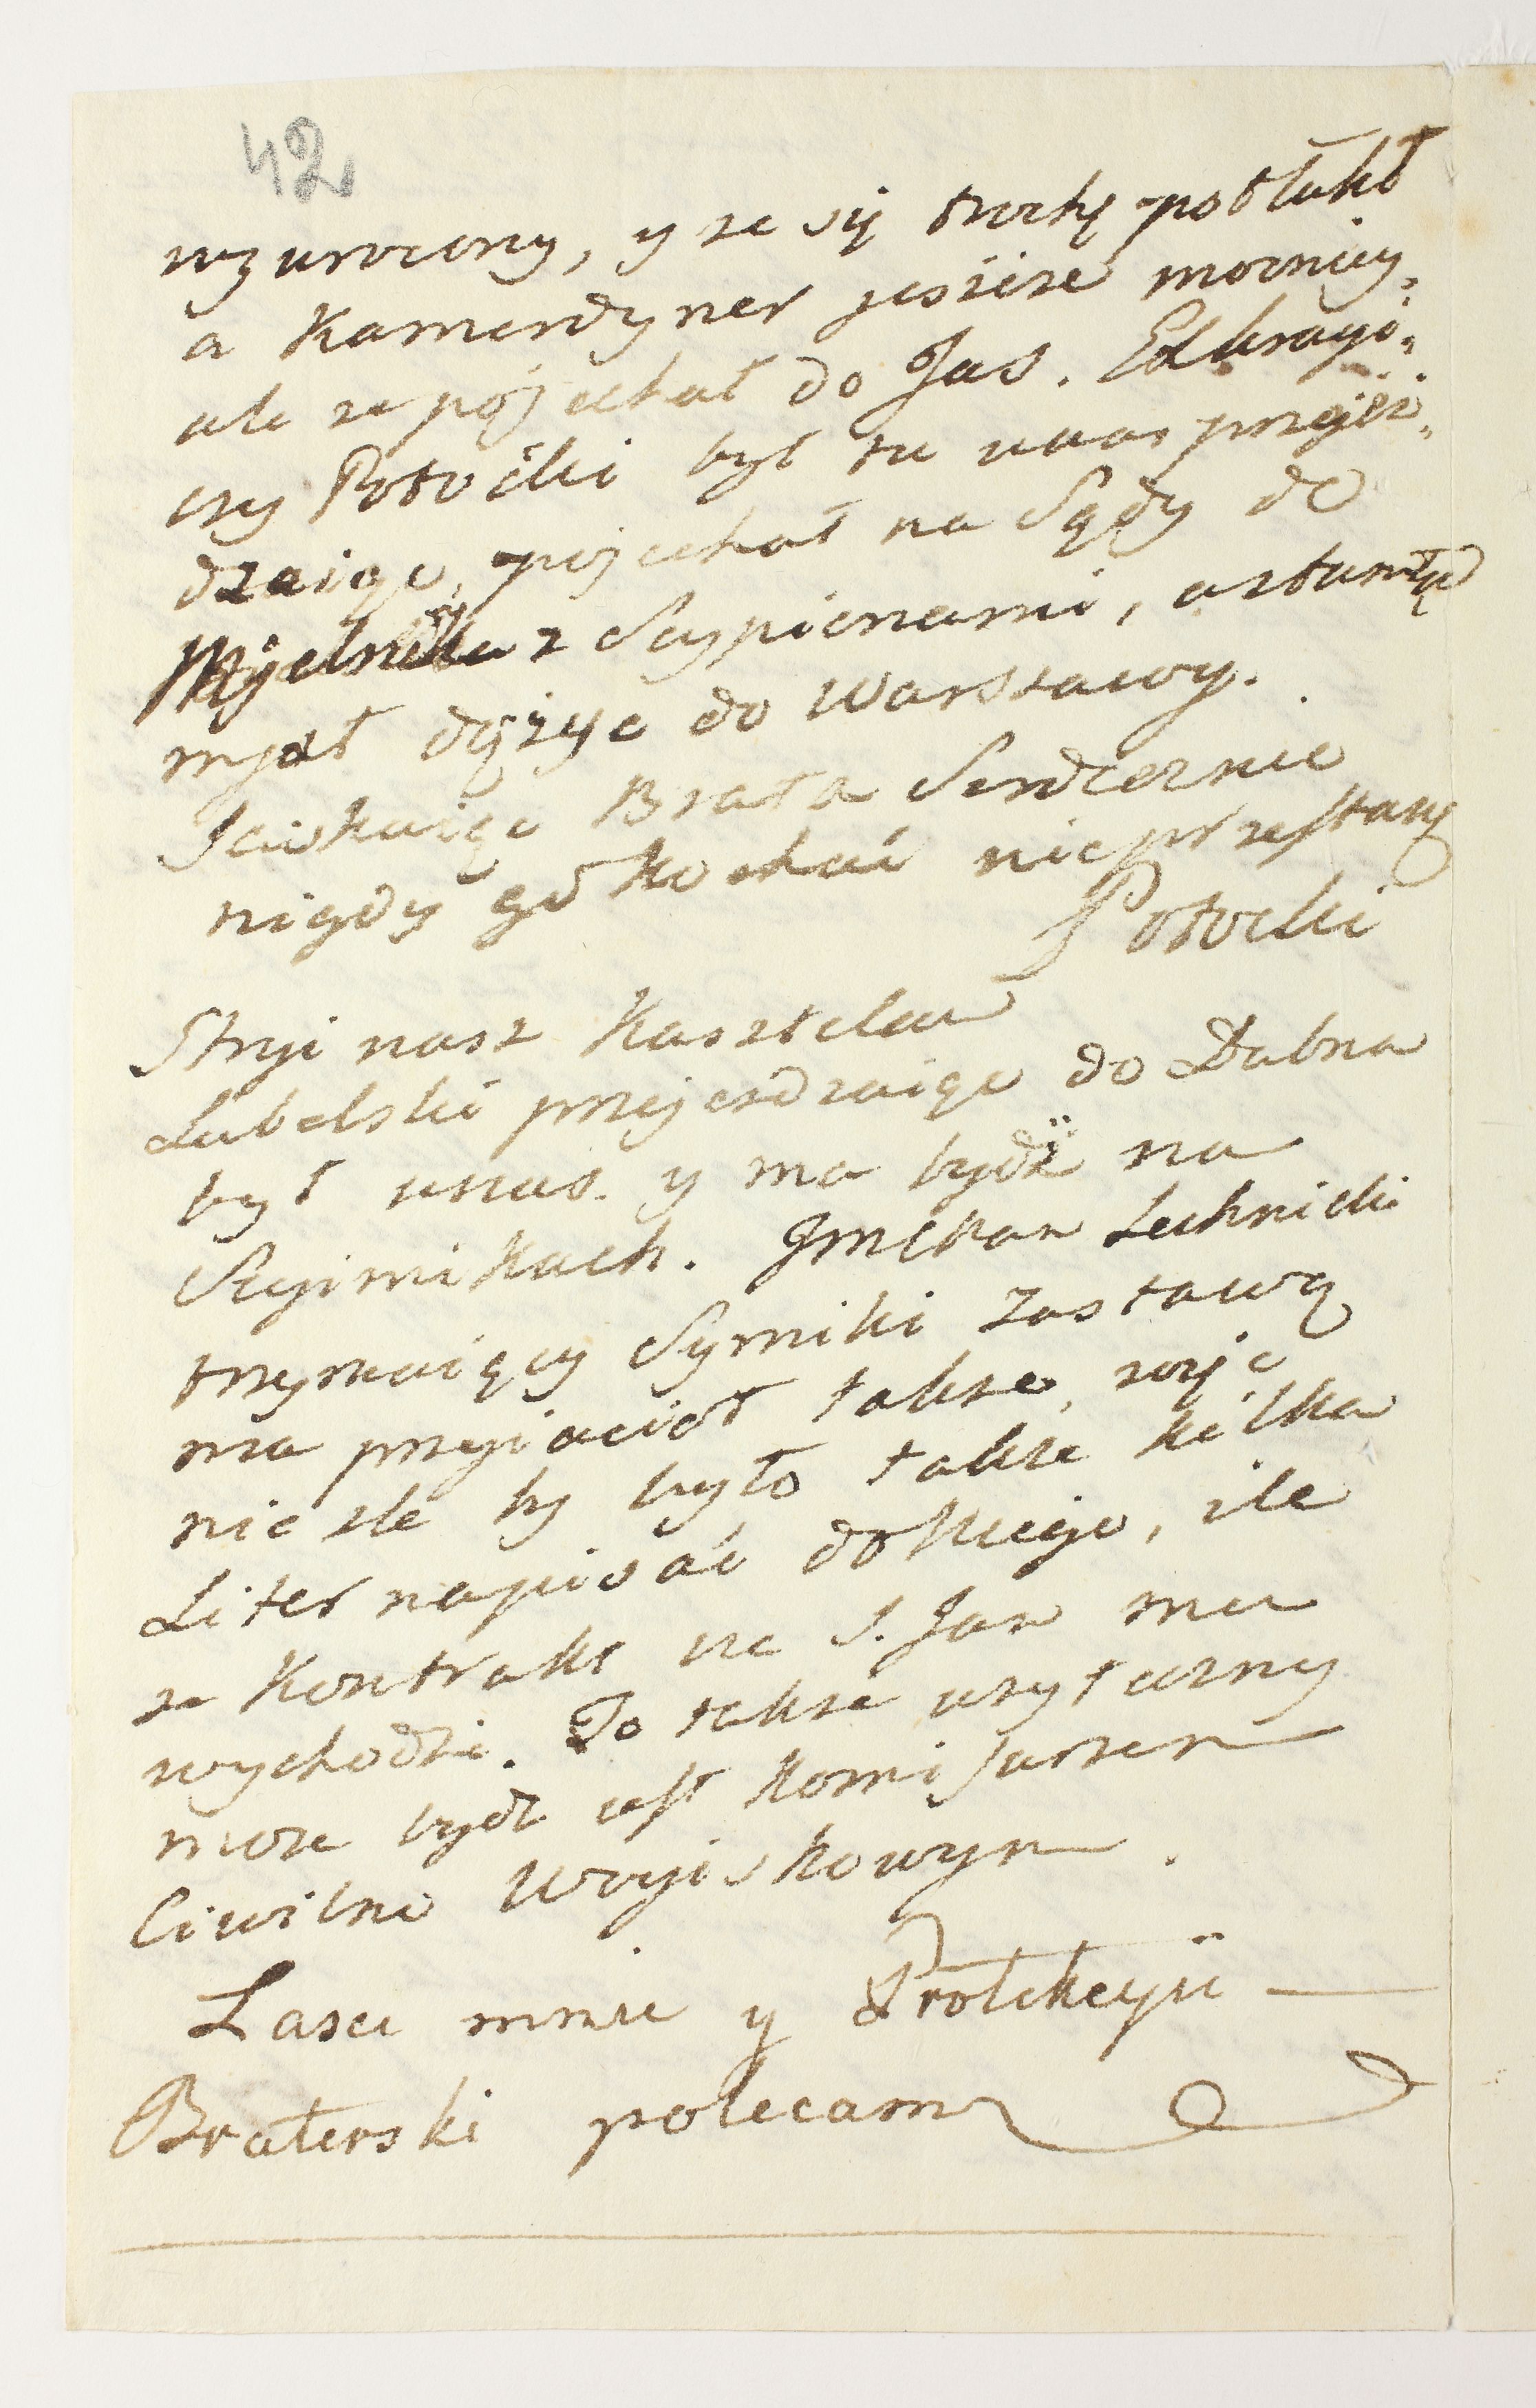 42
wzurocony, y ze się trochę potłukł
a Kamerdyner jeszcze mocniey,
ale ze pojechał do Jas.
czy Potocki był tu unas przejeż„
dzaiąc, pojechał na Sądy do
Myelnika z Scypionami, a ztamtąd
myał dążyc do Warszawy.
Sciskaiąc Brata Serdecznie
nigdy go kochać nieprzestanę
Potocki
Stryi nasz Kasztelan
Lubelski przejezdzaiąc do Dubna
był unas y ma bydź na
Seyimikach. JmcPan Lechnicki
trzymaiący Symiki Zastawą
ma przyiacioł także,
nie zle by było także kilka
Liter napisać do Niego, ile
ze Kontrakt na S. Jan mu
wychodzi. To także uzyteczny
moze bydz iest Komisarzem
Ciwilno Woyiskowym.
Lasce mnie y Protekcyii
Braterski polecam